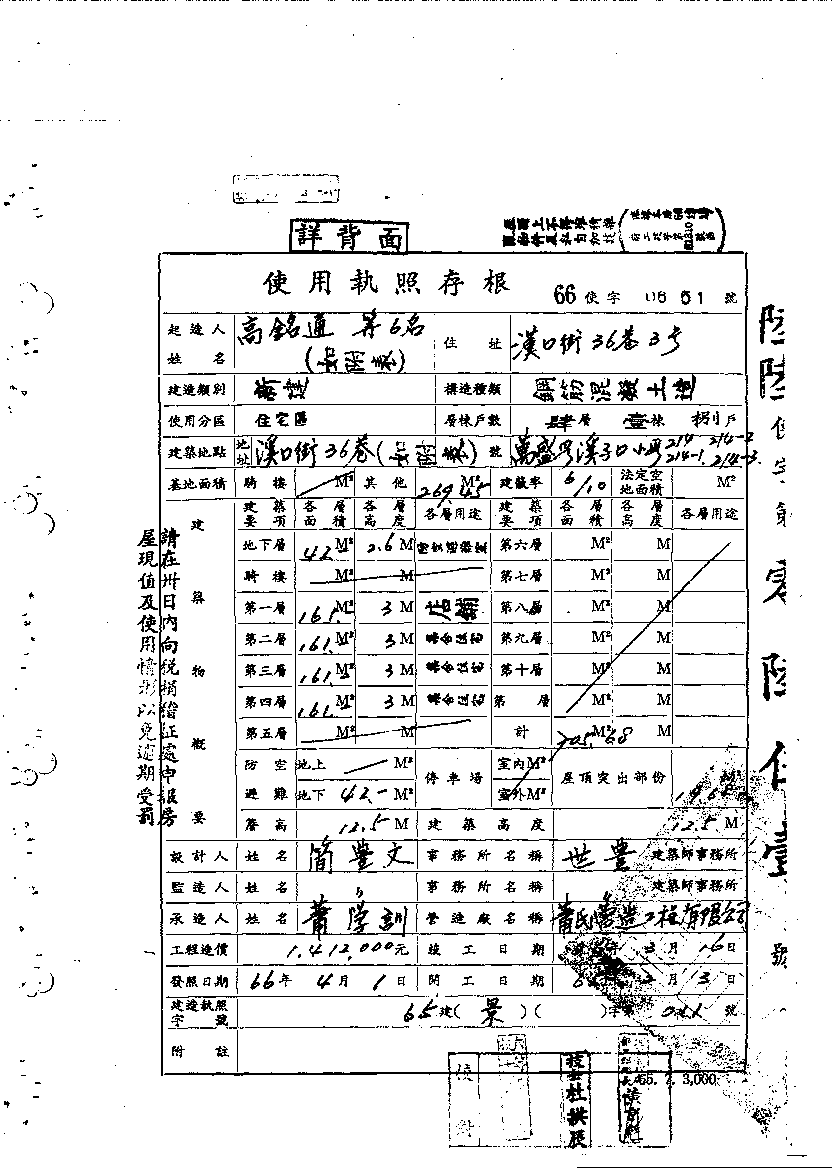 詳背面
使用執照存根
66使字0661號
起造人姓名 高銘通 等6名 (如附表) 住址 漢口街36巷3号
建造類別 新建 構造種類 鋼筋混凝土造
使用分區 住宅區 層棟戶數 肆層 壹棟 捌戶
建築地點 地址 溪口街36巷(如附表)號 萬盛段溪子口小段214 214-1. 214-2 214-3
基地面積 騎樓 M² 其他 269.45 M² 建蔽率 6/10 法定空地面積 M²
建築要項 各層面積 各層高度 各層用途 建築要項 各層面積 各層高度 各層用途
地下層 42 M² 2.6 M 第六層 M² M
騎樓 M² M 第七層 M² M
第一層 161. M² 3 M 店鋪 第八層 M² M
第二層 161. M² 3 M 集合住宅 第九層 M² M
第三層 161. M² 3 M 集合住宅 第十層 M² M
第四層 161. M² 3 M 集合住宅 第 層 M² M
第五層 M² M 計 M² M
建築物概要
防空避難 地上 M² 地下 42.- M² 停車場 室內M² 室外M² 屋頂突出部份 M²
簷高 12.5 M 建築高度 12.5 M
設計人 姓名 簡豐文 事務所名稱 世豐 建築師事務所
監造人 姓名 〃 事務所名稱 建築師事務所
承造人 姓名 蕭學訓 營造廠名稱 蕭氏營造工程有限公司
工程造價 1,412,000元 竣工日期 3月16日
發照日期 66年4月1日 開工日期 月3日
建造執照字號 65建(景)( )字第 號
附註
65. 7. 3,000
請在卅日內向稅捐稽征處申報房
屋現值及使用情形以免逾期受罰
陸陸使字第零陸伍壹號